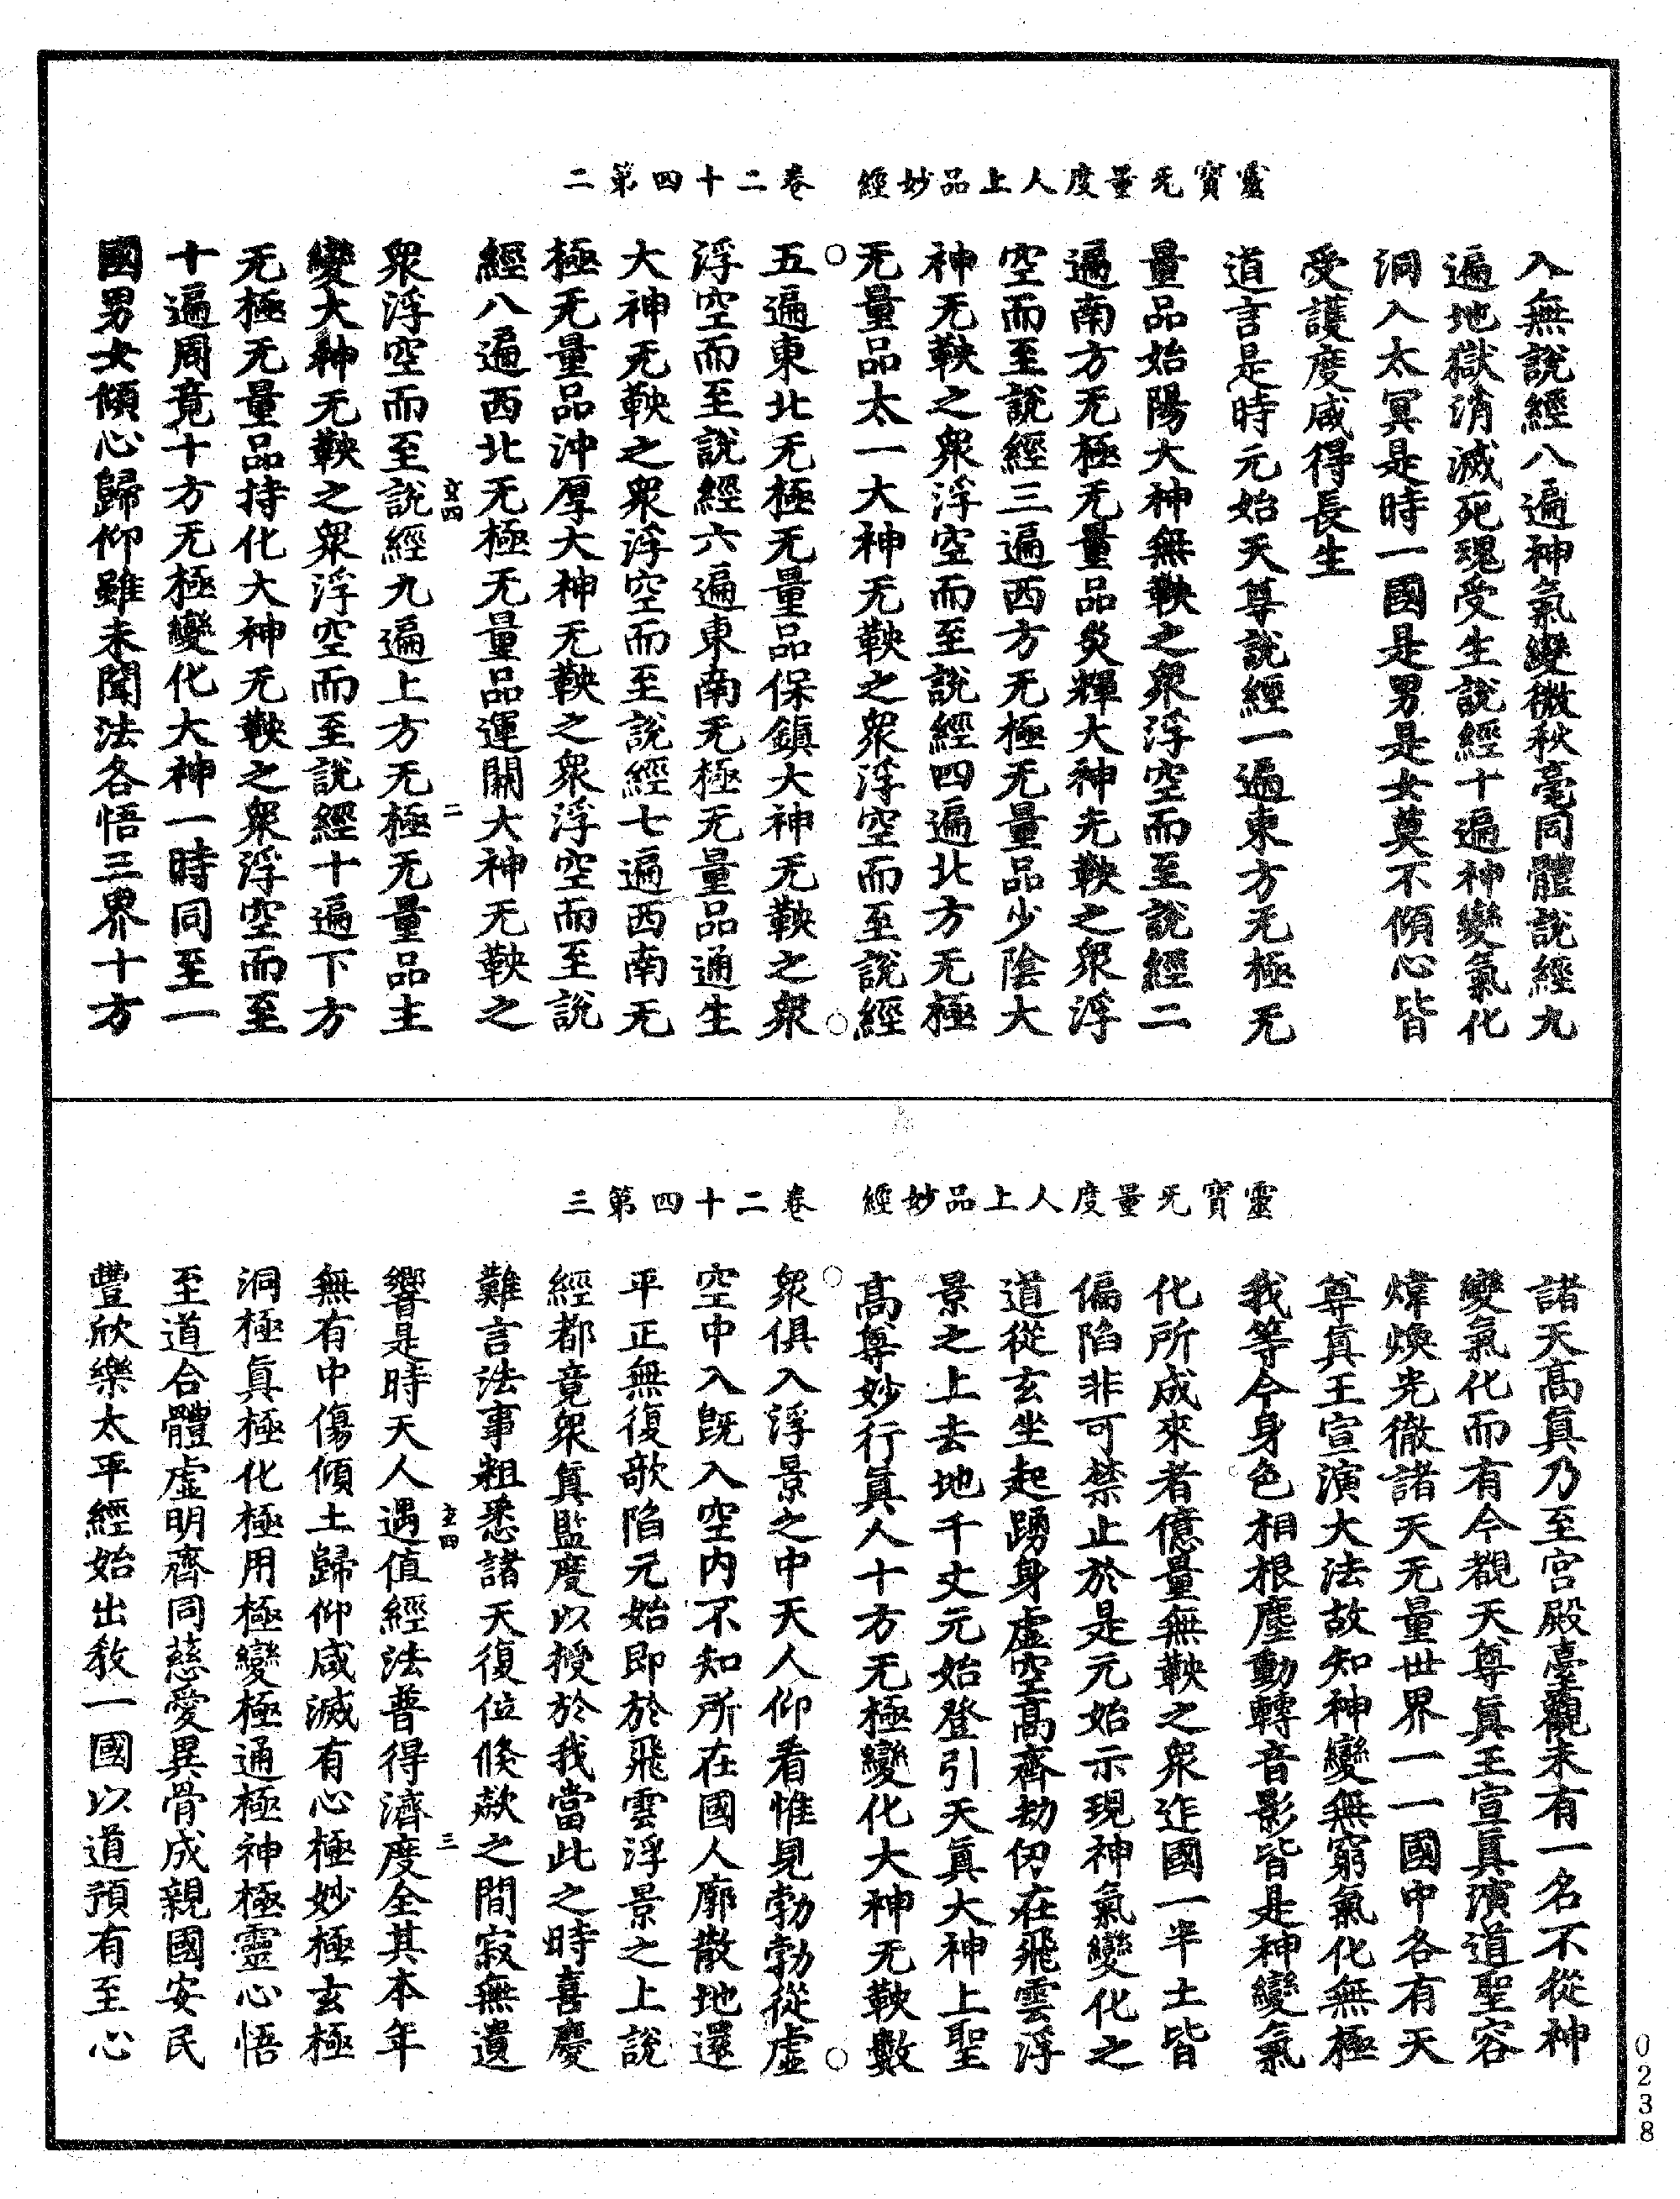 靈寶无量度人上品妙經　卷二十四第二
入無說經八遍神氣變微秋毫同體說經九
遍地獄消滅死魂受生說經十遍神變氣化
洞入太冥是時一國是男是女莫不傾心皆
受護度咸得長生
道言是時元始天尊說經一遍東方无極无
量品始陽大神無鞅之眾浮空而至說經二
遍南方无極无量品炎輝大神无鞅之眾浮
空而至說經三遍西方无極无量品少陰大
神无鞅之眾浮空而至說經四遍北方无極
无量品太一大神无鞅之眾浮空而至說經
五遍東北无極无量品保鎮大神无鞅之眾
浮空而至說經六遍東南无極无量品通生
大神无鞅之眾浮空而至說經七遍西南无
極无量品沖厚大神无鞅之眾浮空而至說
經八遍西北无極无量品運關大神无鞅之
文四　二
眾浮空而至說經九遍上方无極无量品主
變大神无鞅之眾浮空而至說經十遍下方
无極无量品持化大神无鞅之眾浮空而至
十遍周竟十方无極變化大神一時同至一
國男女傾心歸仰雖未聞法各悟三界十方
靈寶无量度人上品妙經　卷二十四第三
諸天高真乃至宮殿臺觀未有一名不從神
變氣化而有今覩天尊真王宣真演道聖容
煒煥光徹諸天无量世界一一國中各有天
尊真王宣演大法故知神變無窮氣化無極
我等今身色相根塵動轉音影皆是神變氣
化所成來者億量無鞅之眾迮國一半土皆
偏陷非可禁止於是元始示現神氣變化之
道從玄坐起踴身虛空高齊劫仞在飛雲浮
景之上去地千丈元始登引天真大神上聖
高尊妙行真人十方无極變化大神无鞅數
眾俱入浮景之中天人仰看惟見勃勃從虛
空中入既入空內不知所在國人廓散地還
平正無復欹陷元始即於飛雲浮景之上說
經都竟眾真監度以授於我當此之時喜慶
難言法事粗悉諸天復位倏歘之間寂無遺
文四　三
響是時天人遇值經法普得濟度全其本年
無有中傷傾土歸仰咸滅有心極妙極玄極
洞極真極化極用極變極通極神極靈心悟
至道合體虛明齊同慈愛異骨成親國安民
豐欣樂太平經始出教一國以道預有至心
0238